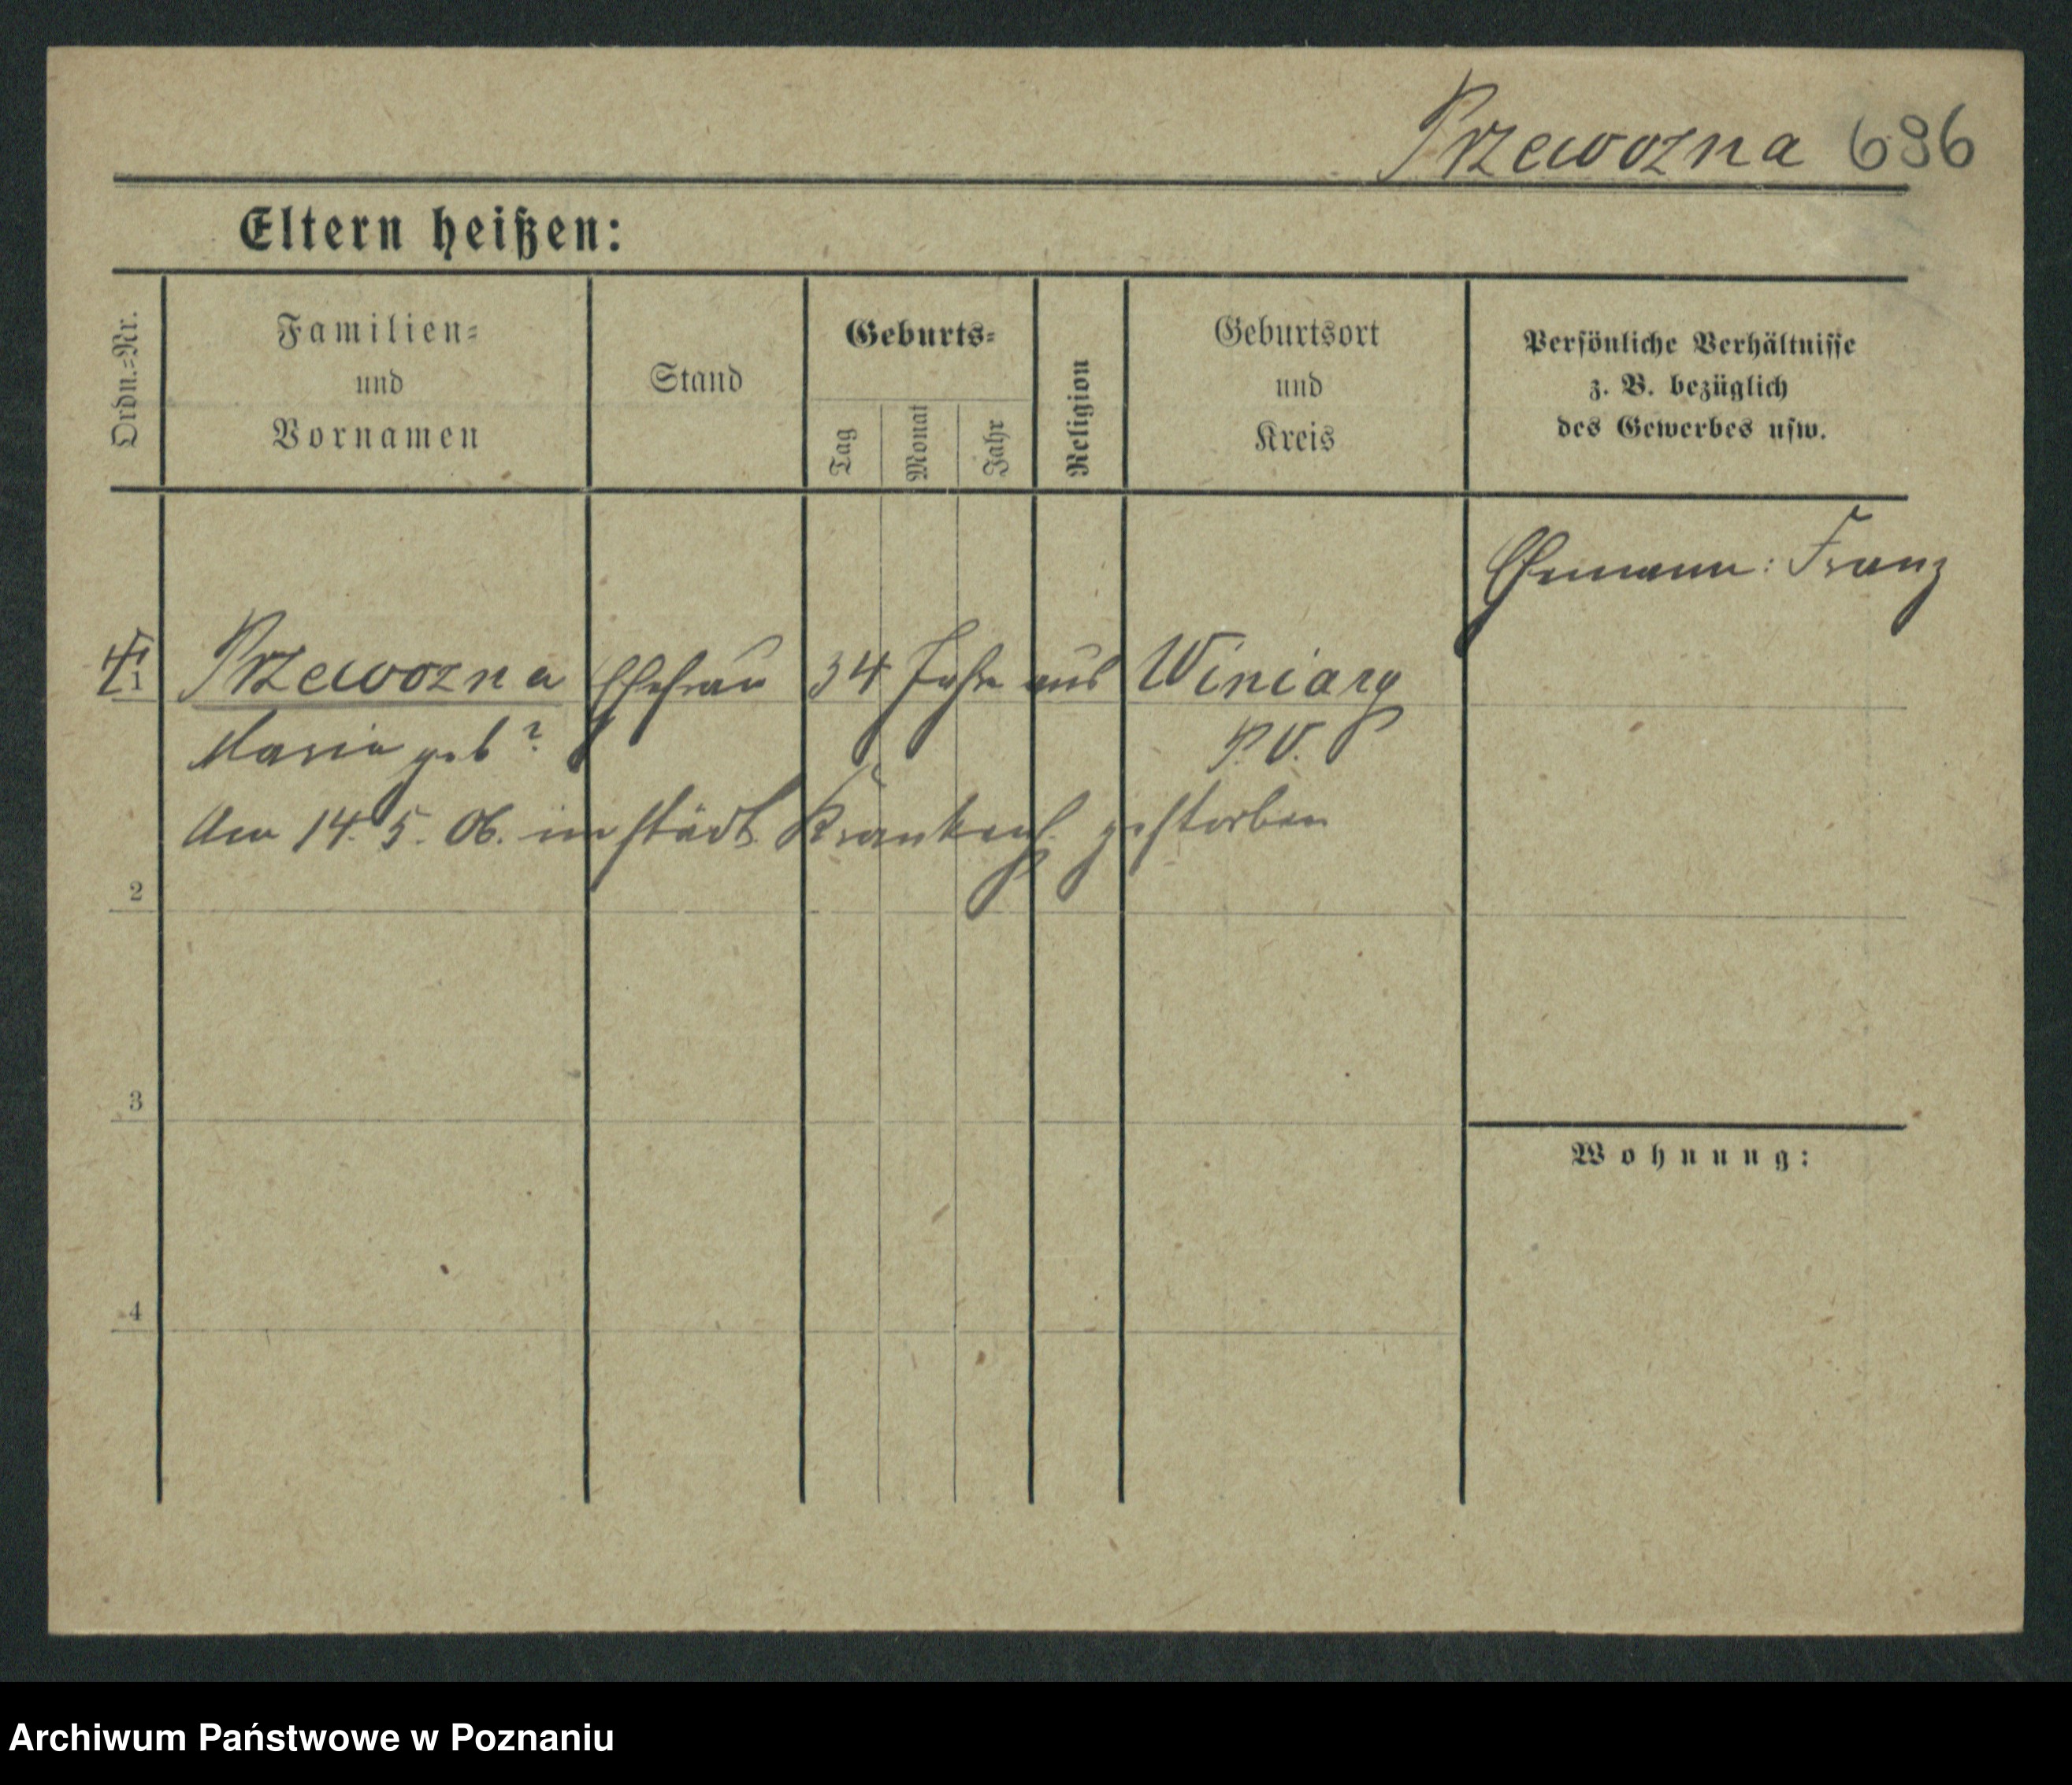 Przewozna 696
Eltern heißen:
Ordn.-Nr.
Familien-
und
Vornamen
Stand
Geburts-
Tag
Monat
Jahr
Religion
Geburtsort
und
Kreis
Persönliche Verhältnisse
z. B. bezüglich
des Gewerbes usw.
Ehemann: Franz
1 Przewozna Ehefrau 34 Jahre aus Winiary
Maria geb? P. O.
Am 14. 5. 06. im städt. Krankenh. gestorben
2
3
Wohnung:
4
Archiwum Państwowe w Poznaniu